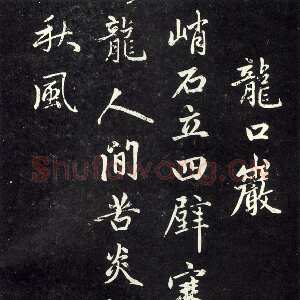 龍口巖
峭石立四壁寒
龍人间苦炎
秋風